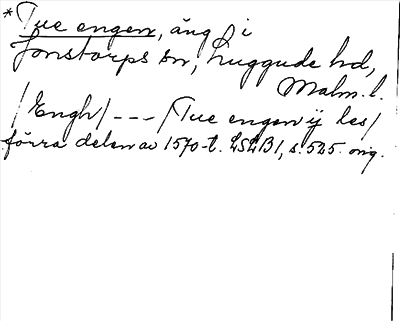 *Tue engen, äng i
Jonstorps sn, Luggude hd,
Malm. l.
/Engh/ --- /Tue engen ij les/
förra delen av 1570-t. LSLB1, s. 525. orig.